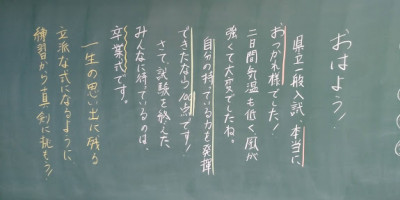 おはよう!
県立一般入試、本当に
おつかれ様でした!
二日間気温も低く風が
強くて大変でしたね。
自分の持っている力を発揮
できたなら100点です!
さて、試験を終えた
みんなに待っているのは、
卒業式です。
一生の思い出に残る
立派な式になるように
練習から真剣に臨もう!